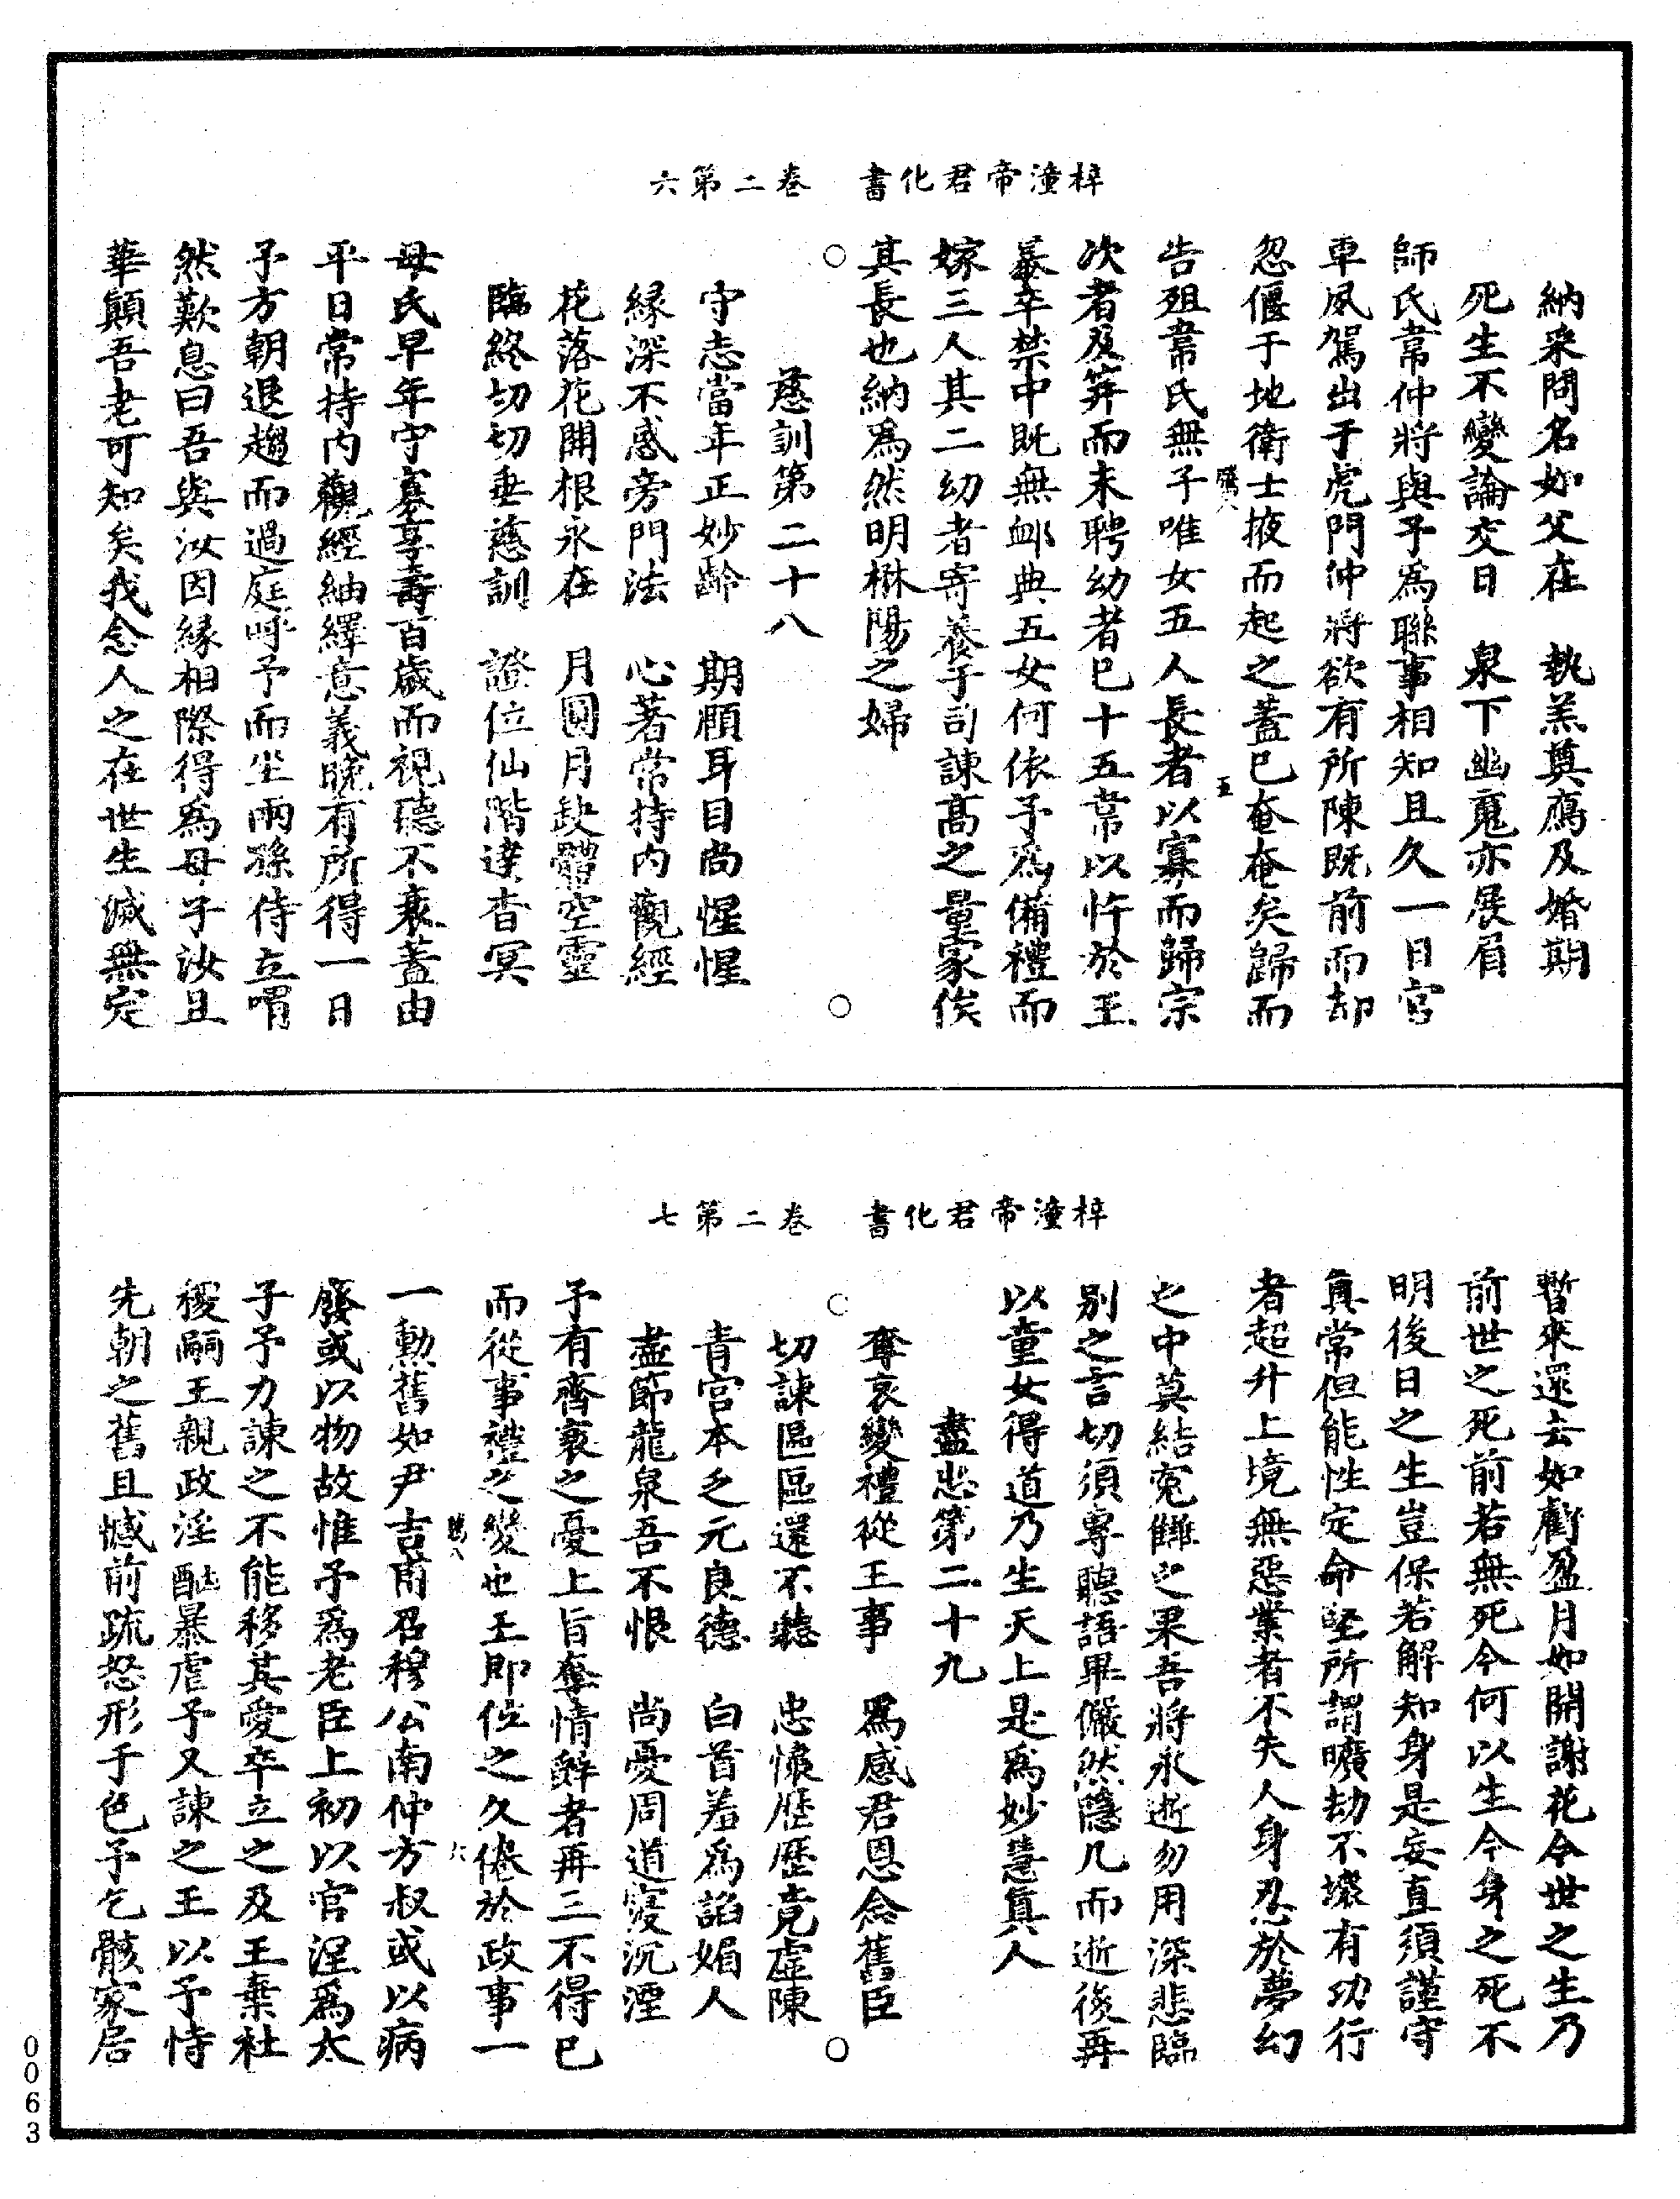 梓潼帝君化書　卷二第六
納采問名如父在　執羔奠鴈及婚期
死生不變論交日　泉下幽䰟亦展眉
師氏韋仲將與予爲聯事相知且久一日官
車夙駕出于虎門仲將欲有所陳既前而却
忽偃于地衛士掖而起之蓋已奄奄矣歸而
告殂韋氏無子唯女五人長者以寡而歸宗
次者及笄而未聘幼者已十五韋以忤於王
暴卒禁中既無䘏典五女何依予爲備禮而
嫁三人其二幼者寄養于司諫高之量家俟
其長也納爲然明楙陽之婦
○　○
慈訓第二十八
守志當年正妙齡　期頤耳目尚惺惺
緣深不惑旁門法　心著常持內觀經
花落花開根永在　月圓月缺體空靈
臨終切切垂慈訓　證位仙階達杳冥
母氏早年守寡享壽百歲而視聽不衰蓋由
平日常持內觀經紬繹意義晚有所得一日
予方朝退趨而過庭呼予而坐兩孫侍立喟
然歎息曰吾與汝因緣相際得爲母子汝且
華顛吾老可知矣我念人之在世生滅無定
梓潼帝君化書　卷二第七
暫來還去如虧盈月如開謝花今世之生乃
前世之死前若無死今何以生今身之死不
明後日之生豈保若解知身是妄直須謹守
眞常但能性定命堅所謂曠劫不壞有功行
者超升上境無惡業者不失人身忍於夢幻
之中莫結寃讎之果吾將永逝勿用深悲臨
別之言切須專聽語畢儼然隱几而逝後再
以童女得道乃生天上是爲妙慧眞人
盡忠第二十九
○　○
奪哀變禮從王事　爲感君恩念舊臣
切諫區區還不聽　忠懷歷歷竟虛陳
青宮本乏元良德　白首羞爲諂媚人
盡節龍泉吾不恨　尚憂周道寖沉湮
予有齊衰之憂上旨奪情辭者再三不得已
而從事禮之變也王即位之久倦於政事一
一勲舊如尹吉甫召穆公南仲方叔或以病
廢或以物故惟予爲老臣上初以宮涅爲太
子予力諫之不能移其愛卒立之及王棄社
稷嗣王親政淫酗暴虐予又諫之王以予恃
先朝之舊且憾前疏怒形于色予乞骸家居
0063